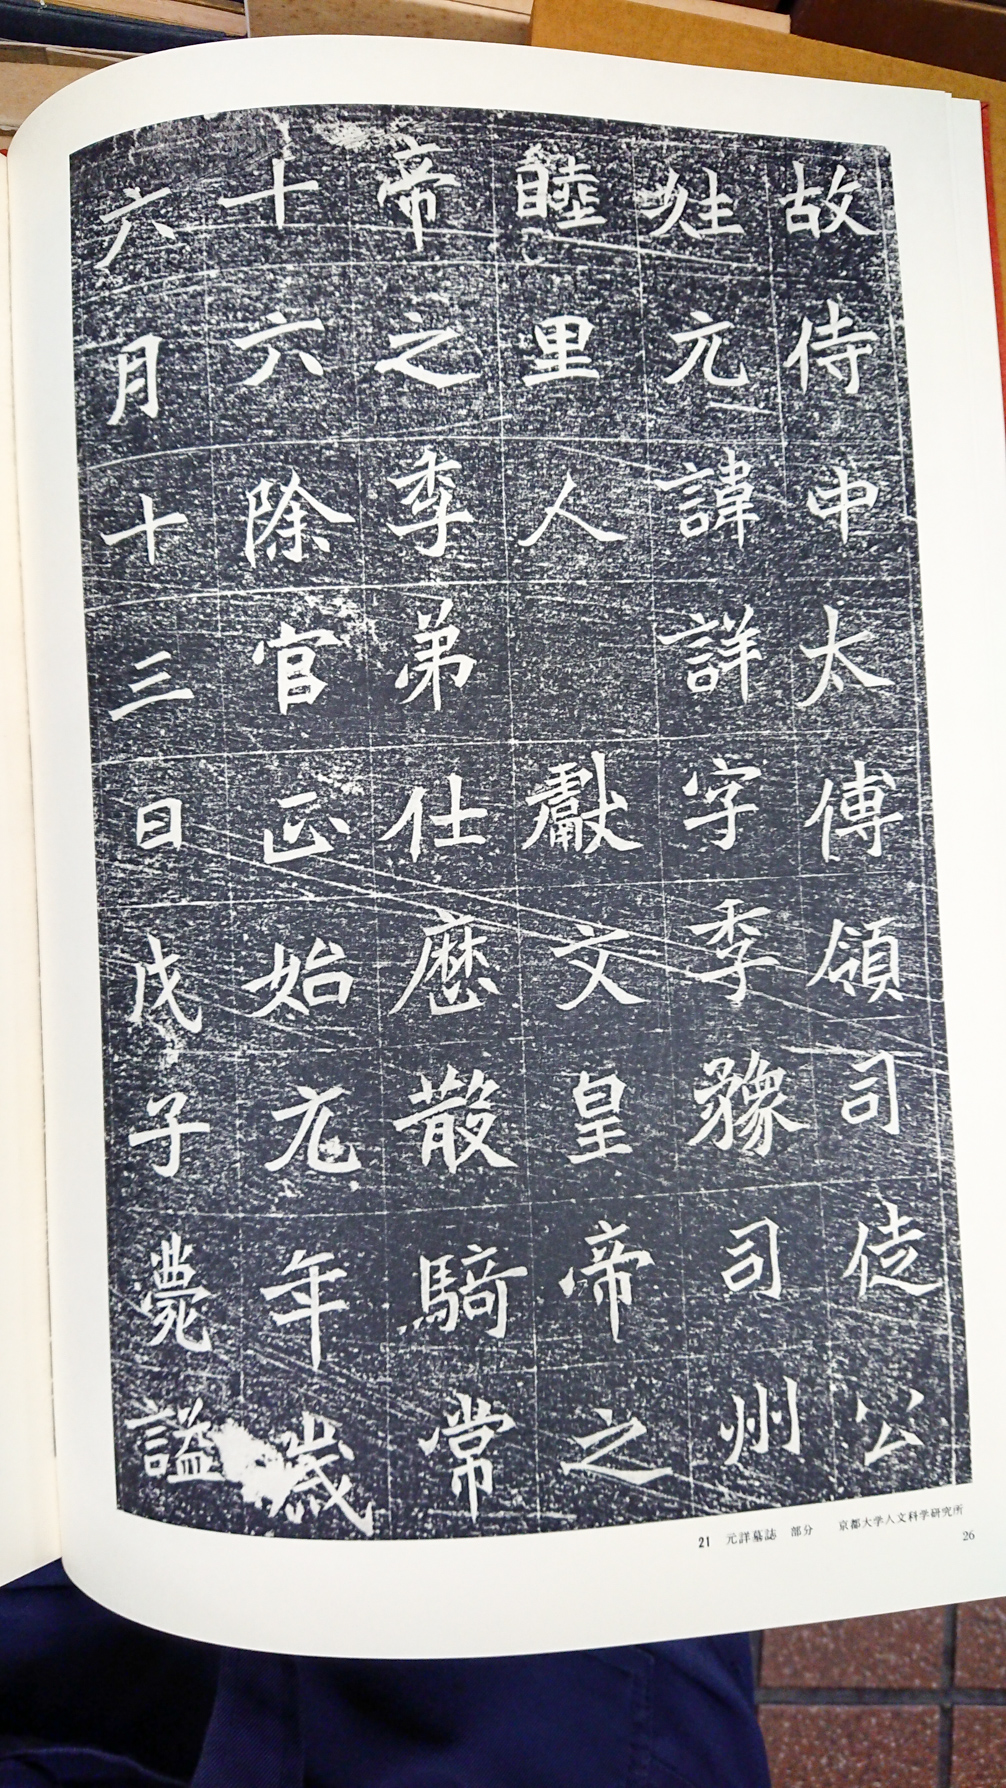 故侍中太傅領司徒公
姓元諱詳字季豫司州
睦里人 獻文皇帝之
帝之季弟仕歷散騎常
十六除官正始元年歲
六月十三日戊子薨謚
21 元詳墓誌 部分 京都大学人文科学研究所
26